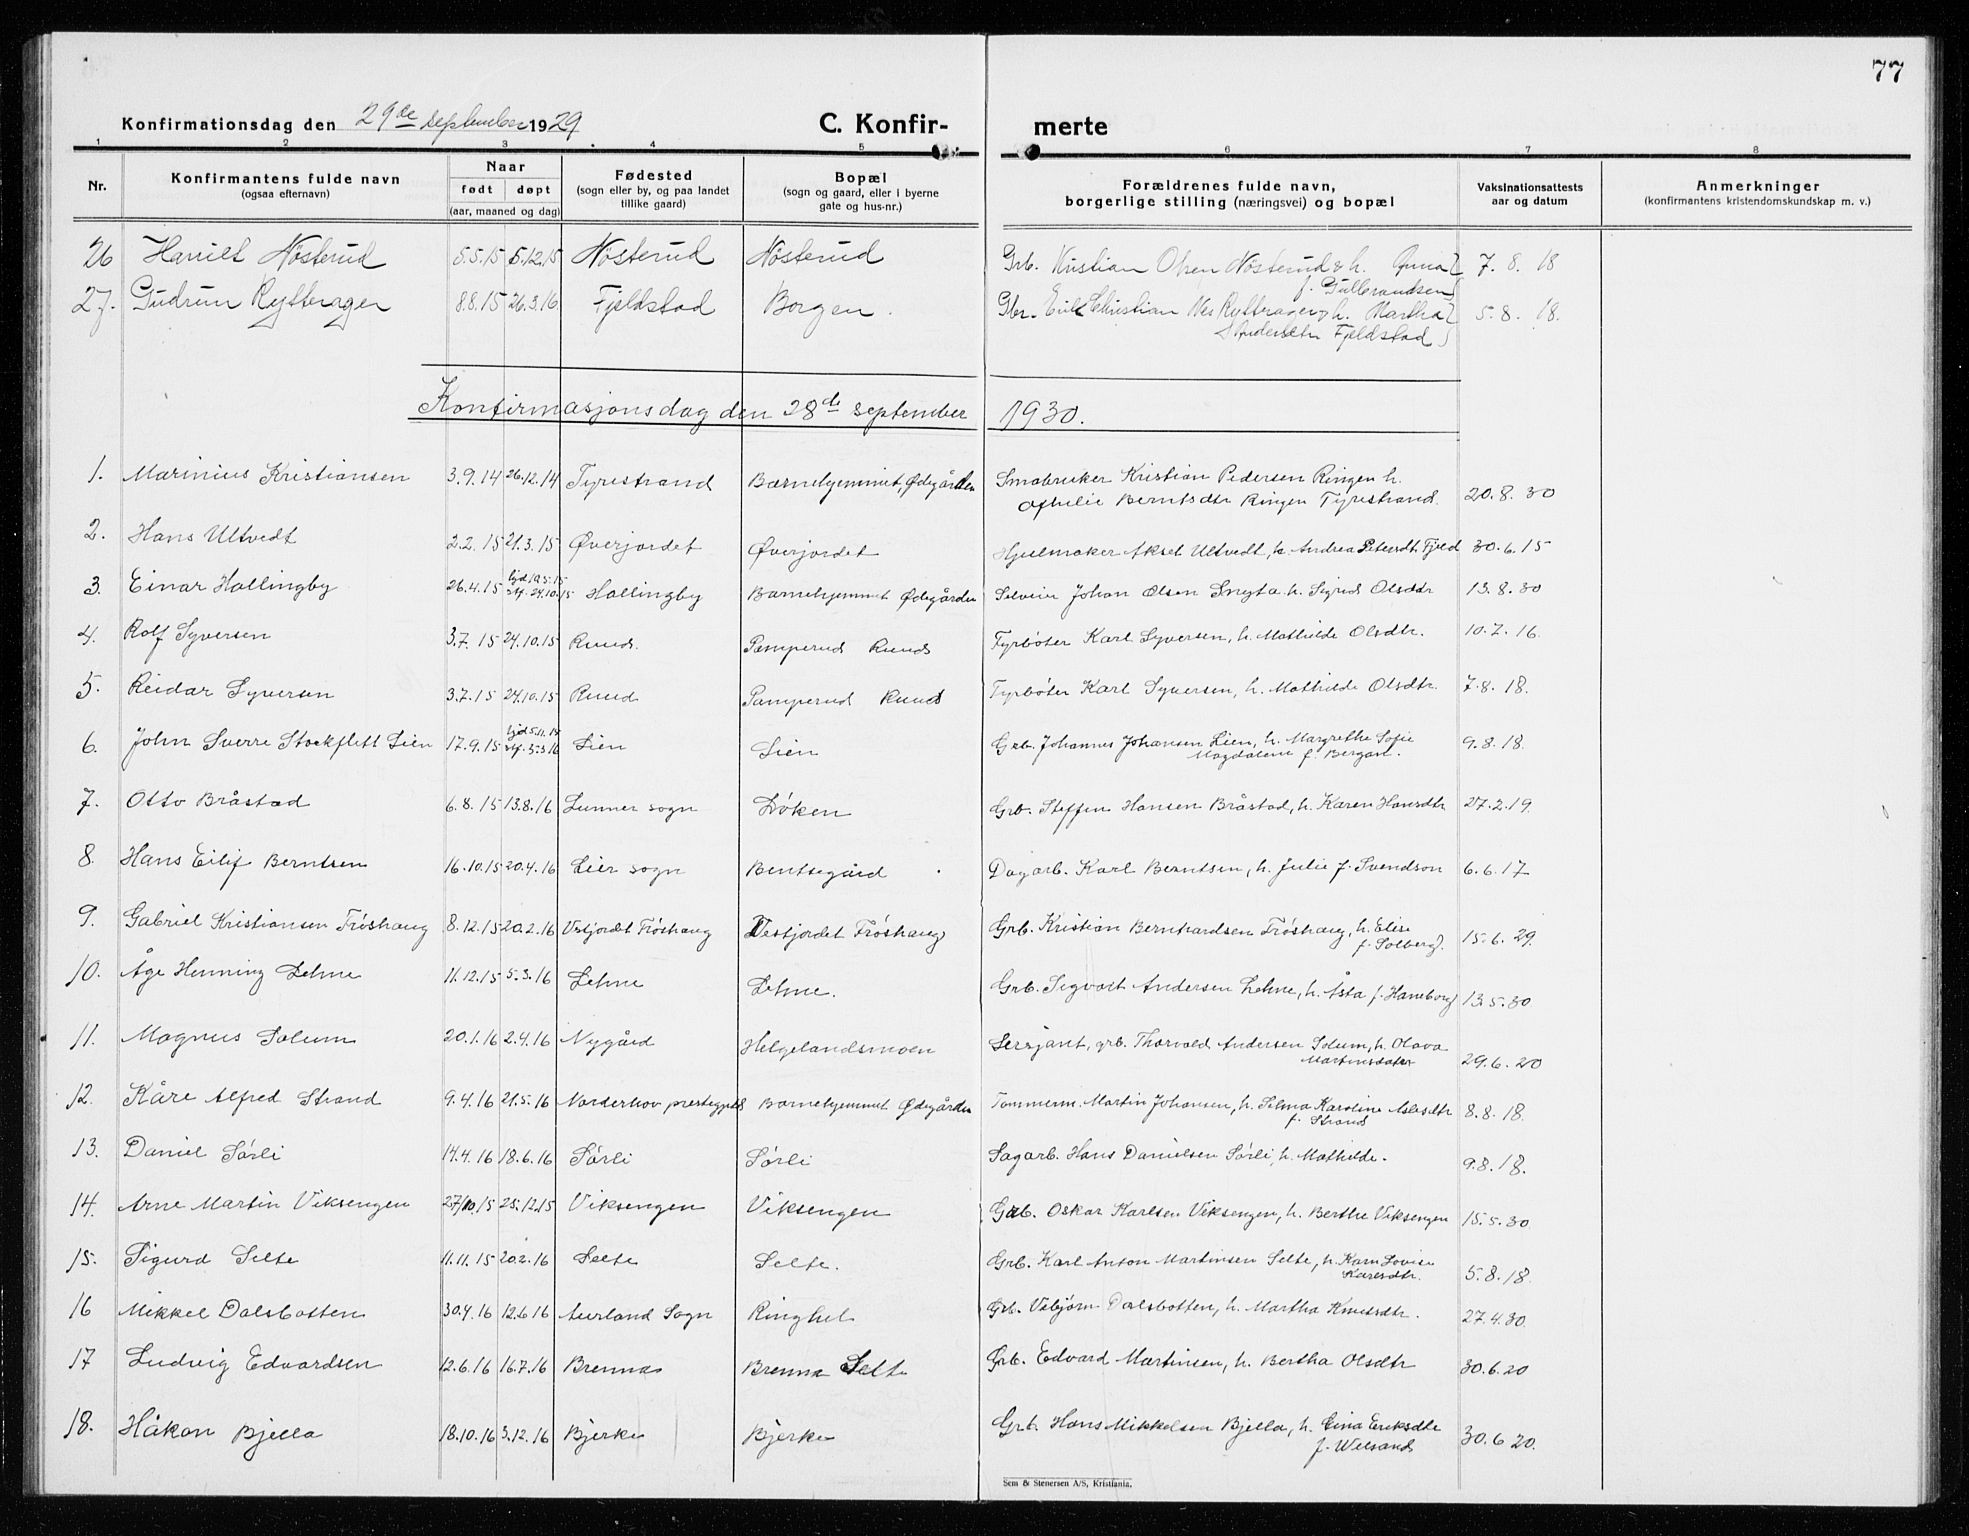 77
Konfirmationsdag den 29de september 1929 C. Konfir- merte
1 2 3 4 5 6 7 8
Nr. Konfirmantens fulde navn (ogsaa efternavn) Naar født døpt (aar, maaned og dag) Fødested (sogn eller by, og paa landet tillike gaard) Bopæl (sogn og gaard, eller i byerne gate og hus-nr.) Forældrenes fulde navn, borgerlige stilling (næringsvei) og bopæl Vaksinationsattests aar og datum Anmerkninger (konfirmantens kristendomskundskap m. v.)
26 Nøsterud 5.5.15 5.12.15 Nøsterud Nøsterud Grb. Kristian Olsen Nøsterud & h. Anna f. Gulbrandsen 7. 8. 18
27. Gudrun Rytterager 8.8.15 26.3.16 Fjeldstad Borgen. Gbr. Erik Christian Nes Rytterager & h. Martha Andersdtr Fjeldstad 5. 8. 18.
Konfirmasjonsdag den 28de september 1930.
1. Marinius Kristiansen 3.9.14 26.12.14 Tyristrand Barnehjemmet, Ødegården Småbruker Kristian Pedersen Ringen h. Othilie Berntsdtr Ringen Tyristrand. 20. 8. 30
2. Hans Ultvedt 2.2.15 21.3.15 Øverjordet Øverjordet Hjulmaker Aksel Ultvedt, h. Andrea Petersdt. Fjeld 30. 6. 15
3. Einar Hallingby 26.4.15 hjd 19.5.15 24.10.15 Hallingby Barnehjemmet Ødegården Selveier Johan Olsen h. Sigrid Olsdtr 13. 8. 30
4. Rolf Syversen 3.7.15 24.10.15 Ruud. Pamperud Ruud Fyrbøter Karl Syversen, h. Mathilde Olsdtr. 10. 7. 16.
5. Reidar Syversen 3.7.15 24.10.15 Ruud Pamperud Ruud Fyrbøter Karl Syversen, h. Mathilde Olsdtr. 7. 8. 18.
6. John Sverre Stockflett Lien 17.9.15 hjd 5.11.15 5.3.16 Lien Lien Grb. Johannes Johansen Lien, h. Margrethe Sofie Magdalene f. Bergan. 9. 8. 18.
7. Otto Bråstad 6.8.15 13.8.16 Lunner sogn Løken Grb. Steffen Hansen Bråstad, h. Karen Hansdtr 27. 2. 19.
8. Hans Eilif Berntsen 16.10.15 20.4.16 Lier sogn Bentsegård Dagarb. Karl Berntsen, h. Julie f. Svendson 6. 6. 17
9. Gabriel Kristiansen Frøshaug 8.12.15 20.2.16 Vestjordet Frøshaug Vestjordet Frøshaug Grb. Kristian Bernhardsen Frøshaug, h. Elise f. Solberg. 15. 6. 29.
10. Åge Henning Lehne 11.12.15 5.3.16 Lehne Lehne. Grb. Sigvart Andersen Lehne, h. Åsta f. Haneborg 13. 5. 30
11. Magnus Solum 20.1.16 2.4.16 Nygård Helgelandsmoen Sersjant, grb. Thorvald Andersen Solum, h. Olava Martinsdatter 29. 6. 20
12. Kåre Alfred Strand 9.4.16 21.5.16 Norderhov prestegjeld Barnehjemmet Ødegården Tømmerm. Martin Johansen, h. Selma Karoline Aslesdtr f. Strand 8. 8. 18.
13. Daniel Sørli 14.4.16 18.6.16 Sørli Sørli Sagarb. Hans Danielsen Sørli, h. Mathilde. 9. 8. 18.
14. Arne Martin Viksengen 27/10.15 25.12.15 Viksengen Viksengen Grb. Oskar Karlsen Viksengen, h. Berthe Viksengen 15. 5. 30
15. Sigurd Selte 11.11.15 20.2.16 Selte Selte. Grb. Karl Anton Martinsen Selte, h. Karn Lovise Karesdtr. 5. 8. 18.
16 Mikkel Dalsbotten 30.4.16 12.6.16 Aurland Sogn Ringhel Grb. Vebjørn Dalsbotten, h. Martha Knutsdtr. 27. 4. 30.
17 Ludvig Edvardsen 12.6.16 16.7.16 Brenna Brenna Selte Grb. Edvard Martinsen, h. Bertha Olsdtr 30. 6. 20
18. Håkon Bjella 18.10.16 3.12.16 Bjerke Bjerke Grb. Hans Mikkelsen Bjella, h. Gina Eriksdtr f. Welsand 30. 6 20.
Sem & Stenersen A/S, Kristiania.